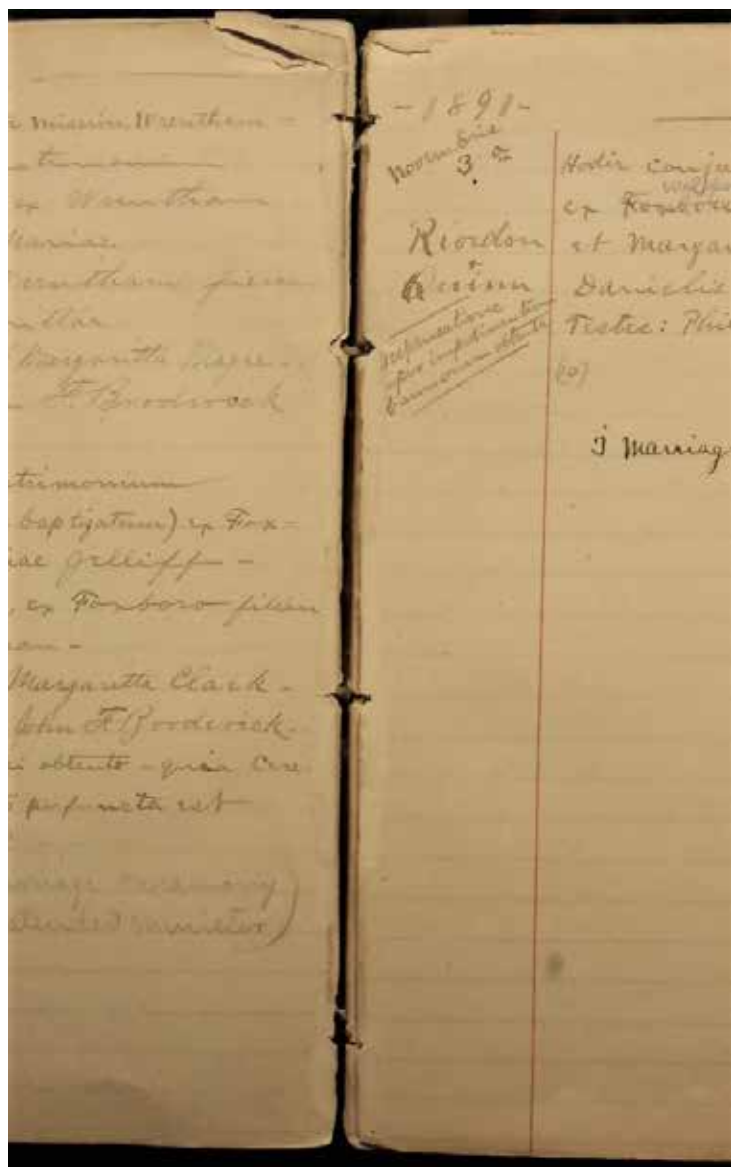 mission Wrentham -
ex Wrentham
Mariae
Wrentham filiam
Margaritta
F. Broderick
trimonium
baptizatum) ex Fox-
iae Jelliff -
, ex Foxboro filiam
Margaritta Clark -
John F Broderick -
obtento - quia Cere
perfuncta est
marriage ceremony)
minister)
- 1891 -
Novembris
3. a
Riordon
&
Quinn
dispensatione
pro impedimentio
bannorum obtenta
Hodie conju
ex Foxboro
et Margar
Danielis
Testes: Phil
(o)
I Marriag